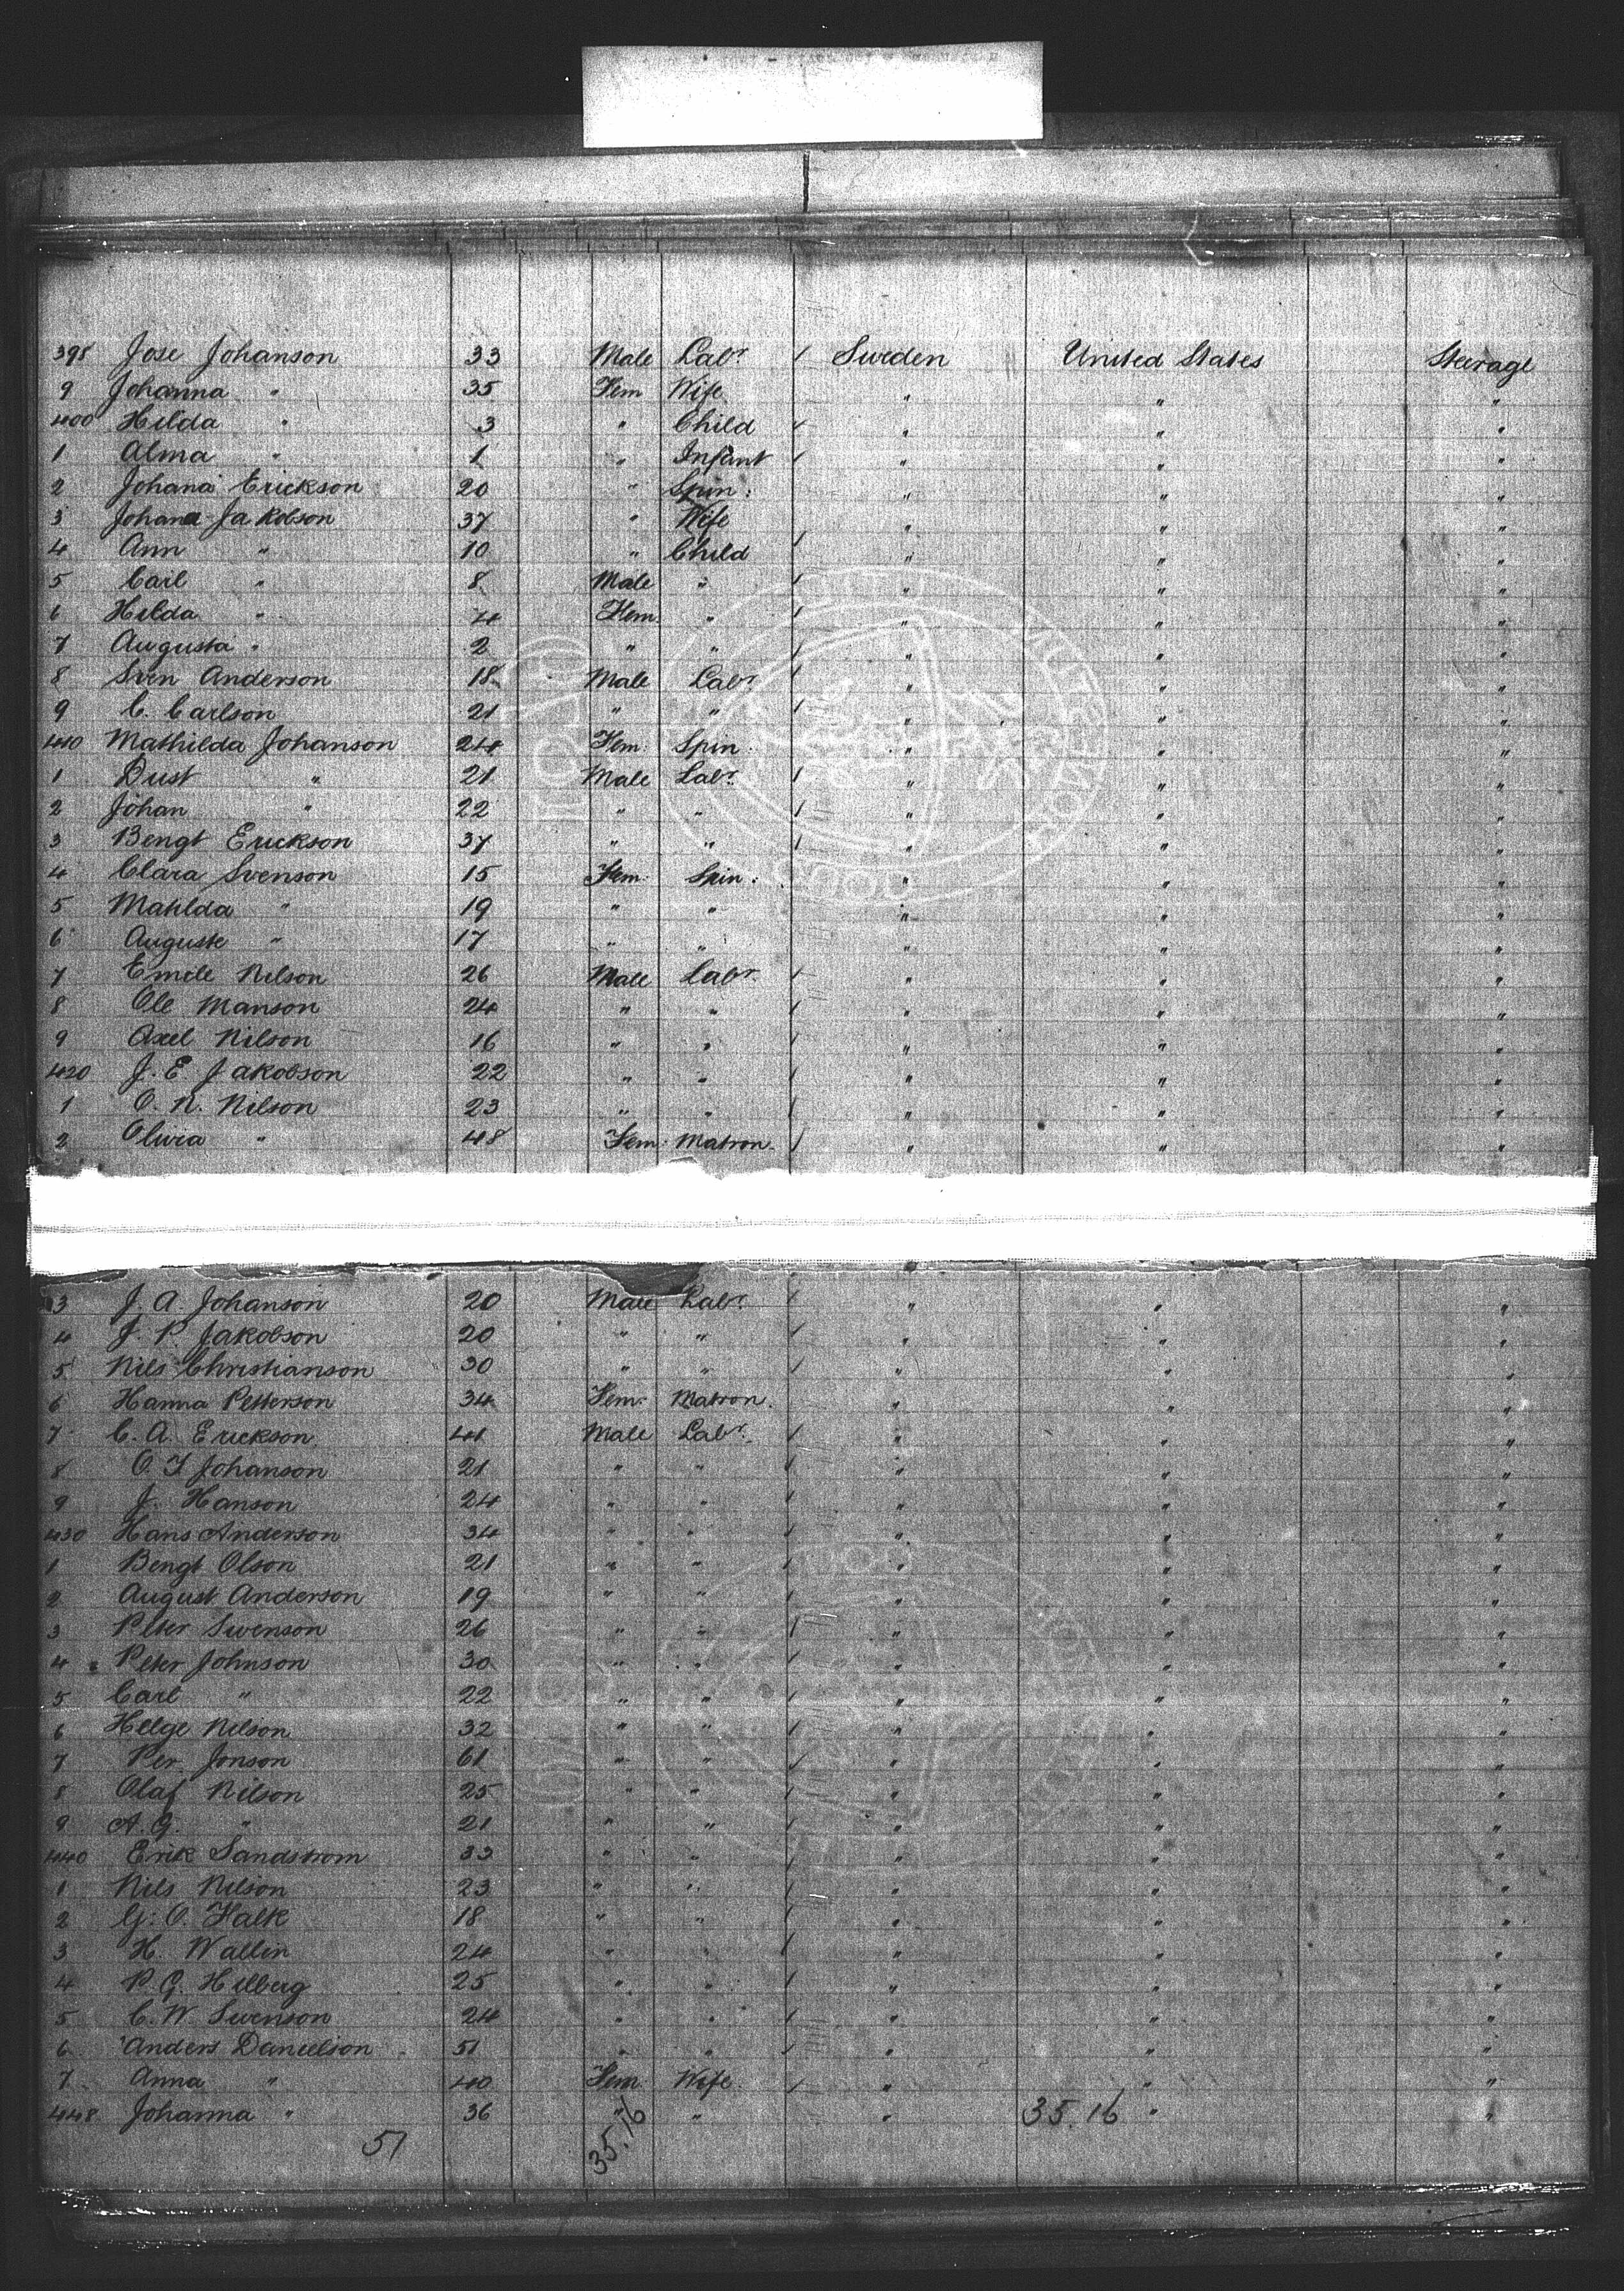 398 Jose Johanson 33 Male Labr / Sweden United States Steerage
9 Johanna " 35 Fem Wife " " "
400 Hilda " 3 " Child / " " "
1 Alma " 1 " Infant / " " "
2 Johana Erickson 20 " Spin: " " "
3 Johana Jakobson 37 " Wife " " "
4 Ann " 10 " Child / " " "
5 Carl " 8 Male " / " " "
6 Hilda " 4 Fem. " / " " "
7 Augusta " 2 " " / " " "
8 Sven Anderson 18 Male Labr / " " "
9 C. Carlson 21 " " / " " "
410 Mathilda Johanson 24 Fem: Spin: " " "
1 Dust " 21 Male Labr / " " "
2 Johan " 22 " " / " " "
3 Bengt Erickson 37 " " / " " "
4 Clara Svenson 15 Fem: Spin: " " "
5 Mahlda " 19 " " " " "
6 Auguste " 17 " " " " "
7 Emile Nilson 26 Male Labr / " " "
8 Ole Manson 24 " " / " " "
9 Axel Nilson 16 " " / " " "
420 J. E Jakobson 22 " " / " " "
1 O. N. Nilson 23 " " / " " "
2 Olivia " 48 Fem: Matron. / " " "
3 J. A. Johanson 20 Male Labr / " " "
4 J. P. Jakobson 20 " " / " " "
5 Nils Christianson 30 " " / " " "
6 Hanna Petterson 34 Fem: Matron. " " "
7 C. A. Erickson 41 Male Labr. / " " "
8 O. F Johanson 21 " " / " " "
9 J. Hanson 24 " " / " " "
430 Hans Anderson 34 " " / " " "
1 Bengt Olson 21 " " / " " "
2 August Anderson 19 " " / " " "
3 Peter Swenson 26 " " / " " "
4 Peter Johnson 30 " " / " " "
5 Carl " 22 " " / " " "
6 Helge Nilson 32 " " / " " "
7 Per Jonson 61 " " / " " "
8 Olaf Nilson 25 " " / " " "
9 A. G. " 21 " " / " " "
440 Erik Sandstrom 33 " " / " " "
1 Nils Nilson 23 " " / " " "
2 G. O. Falk 18 " " / " " "
3 H. Wallin 24 " " / " " "
4 P. G. Hilberg 25 " " / " " "
5 C. W. Swenson 24 " " / " " "
6 Anders Danielson 51 " " / " " "
7 Anna " 40 Fem Wife / " " "
448 Johanna " 36 " " " 35.16 " "
51 35.16